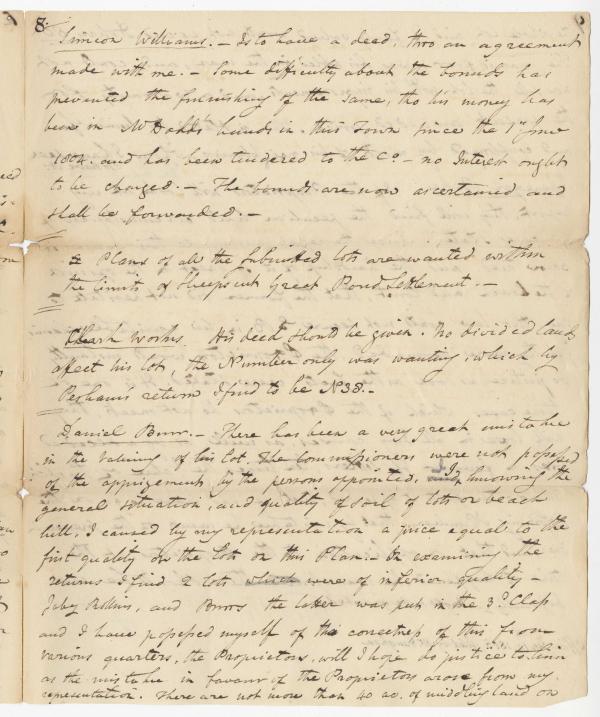 8.
Simeon Williams. – Is to have a deed, thro an agreement
made with me. – Some difficulty about the bounds has
prevented the furnishing of the same, tho his money has
been in Mr Dodds hands in this Town since the 1st June
1804. and has been tendered to the Co – no Interest ought
to be charged. – The bounds are now ascertained and
shall be forwarded. –
Plans of all the Submitted lots are wanted within
the limits of Sheepscut Great Pond Settlement. –
Works. His deed should be given. No divided lands
affect his lot, the Number only was wanting, which by
Pesham's return I find to be N38. –
Daniel Burr. – There has been a very great mistake
in the valuing of his lot. The Commissioners were not possessed
of the apprizement by the persons appointed, knowing the
general situation, and quality of soil of lots on beach
hill, I caused by my representation a price equal to the
first quality on the lots on this Plan. – On examining the
returns I find 2 lots which were of inferior quality –
Jaby Rollins, and Burrs the latter was put in the 3d Class
and I have possessed myself of the correctness of this from
various quarters, the Proprietors, will I hope do justice to him
as the mistake in favour of the Proprietors arose from my
representation. There are not more than 40 ac. of middling land on